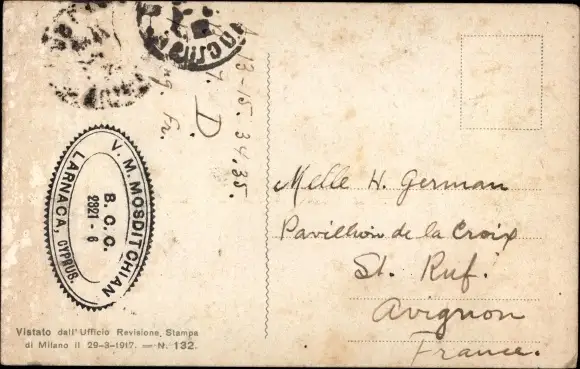 V. M. MOSDITCHIAN
B. C. C.
2921 - 6
LARNACA, CYPRUS.
13-15. 34.35.
D.
Fr.
Melle H. German
Pavillion de la Croix
St. Ruf.
Avignon
France.
Vistato dall' Ufficio Revisione, Stampa
di Milano il 29-3-1917. — N. 132.